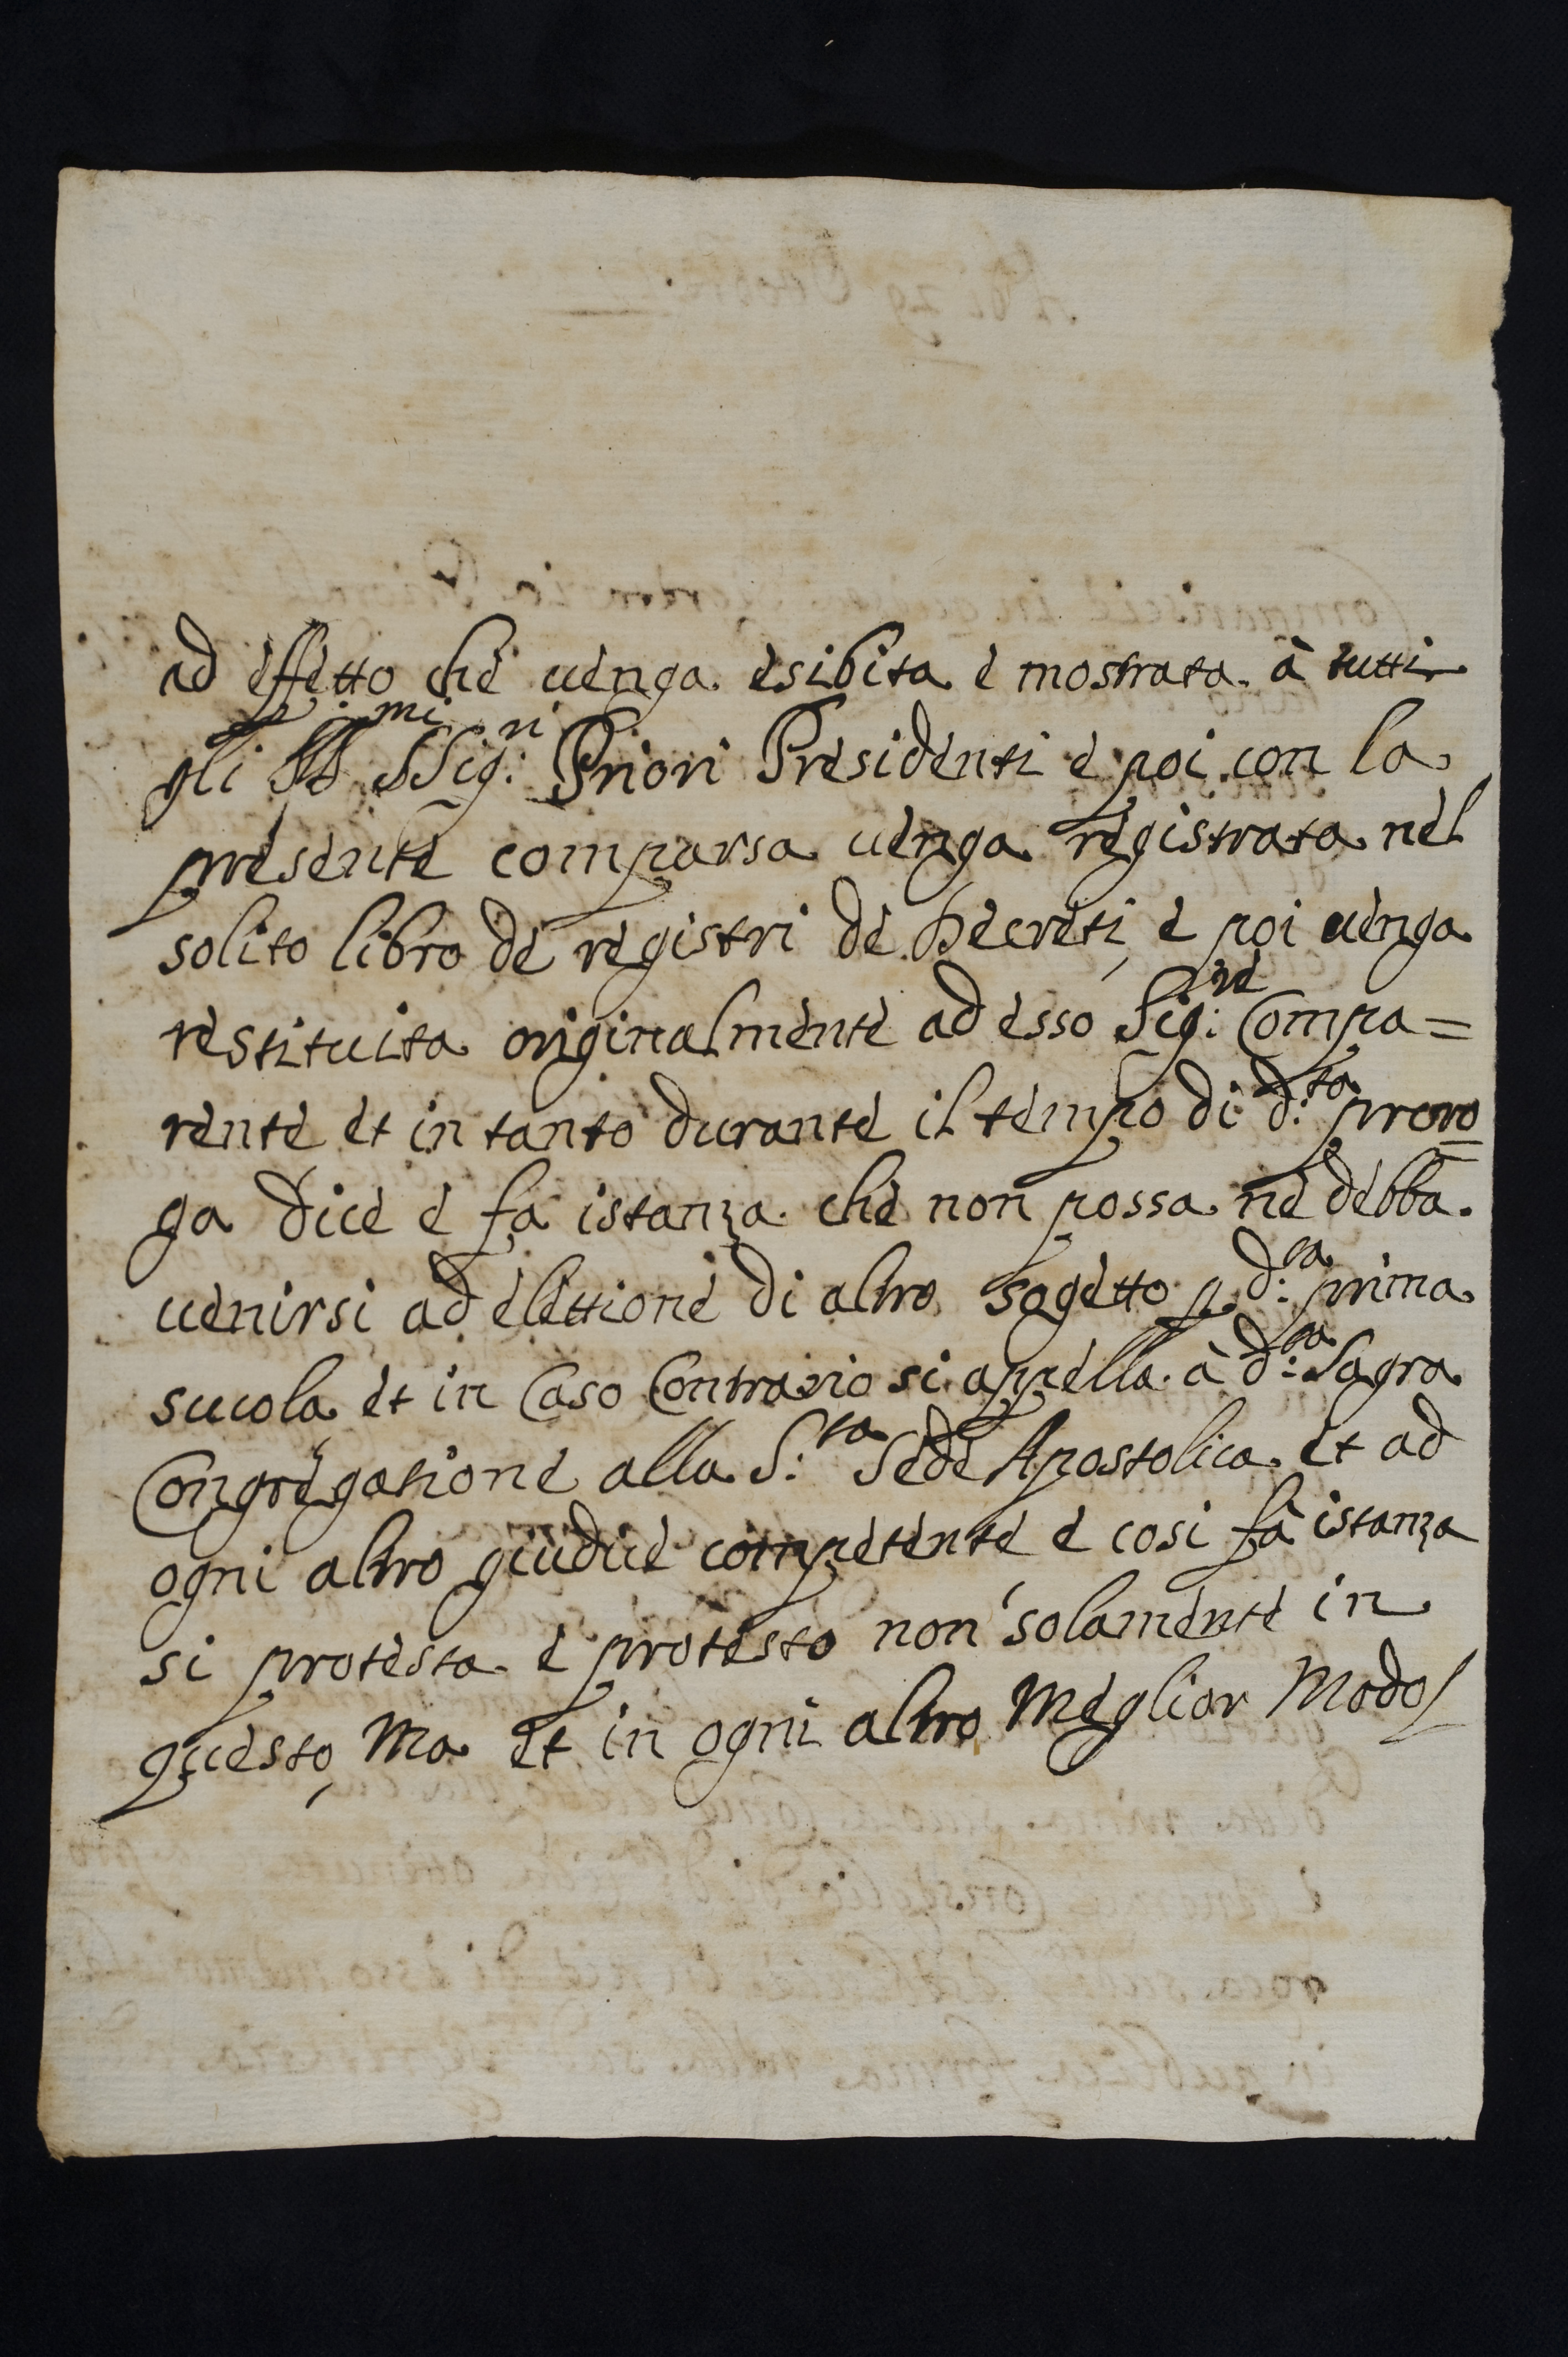 ad effetto che uenga esibita e mostrata à tutti
gli Ill:mi SSig:ri Priori Presidenti e poi con la
presente comparsa uenga registrata nel
solito libro de registri de Decreti, e poi uenga
restituita originalmente ad esso Sig:re Compa=
rente et in tanto durante il tempo di d:ta proro=
ga dice e fa istanza che non possa ne debba
uenirsi ad elettione di altro sogetto p d:ta prima
scuola et in Caso Contrario si appella à d:ta Sagra
Congregatione alla S:ta Sede Apostolica et ad
ogni altro giudice competente e cosi fà istanza
si protesta e protesto non solamente in
questo, Ma et in ogni altro Meglior Modo